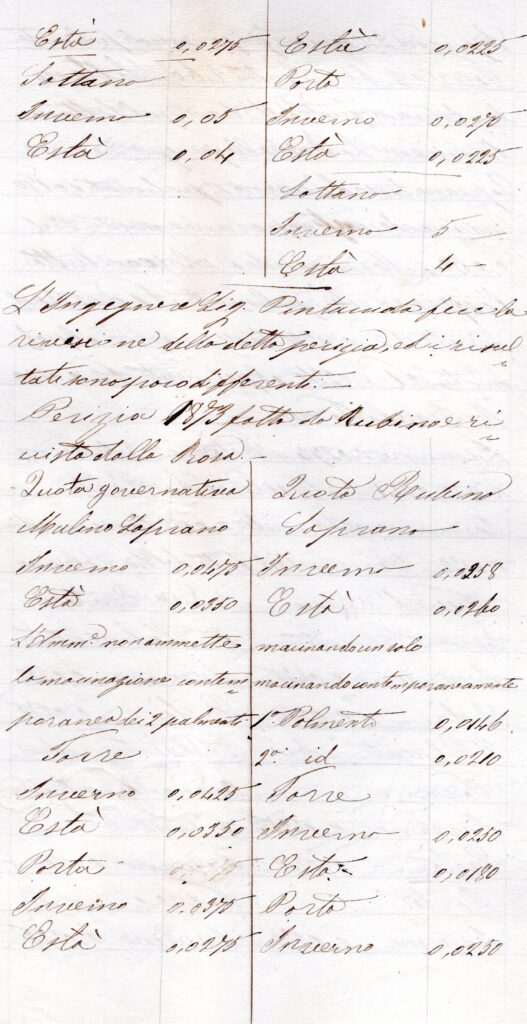 Està 0,0275 Està 0,0225
Sottano Porta
Inverno 0,05 Inverno 0,0275
Està 0,04 Està 0,0225
Sottano
Inverno 5 —
Està 4 —
L'Ingegnere Sig. Pintacuda fece la
rivisione della detta perizia, ed i risul-
tati sono poco differenti. —
Perizia 1873 fatta da Rubino e ri-
vista dalla Rosa. —
Quota governativa Quota Rubino
Mulino Soprano Soprano
Inverno 0,0475 Inverno 0,0258
Està 0,0350 Està 0,0260
L'Amm.e non ammette macinando un solo
la macinazione contem- macinando contemporaneamente
poranea dei 2 palmenti 1° Palmento 0,0146
Torre 2° id 0,0210
Inverno 0,0425 Torre
Està 0,0350 Inverno 0,0230
Porta Està 0,0180
Inverno 0.0375 Porta
Està 0,0275 Inverno 0,0230